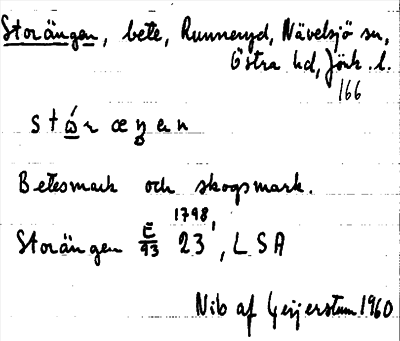 Storängen, bete, Runneryd, Nävelsjö sn,
Östra hd, Jönk. l.
166
Betesmark och skogsmark.
1798
Storängen E/93 23', LSA
Nib af Geijerstam 1960